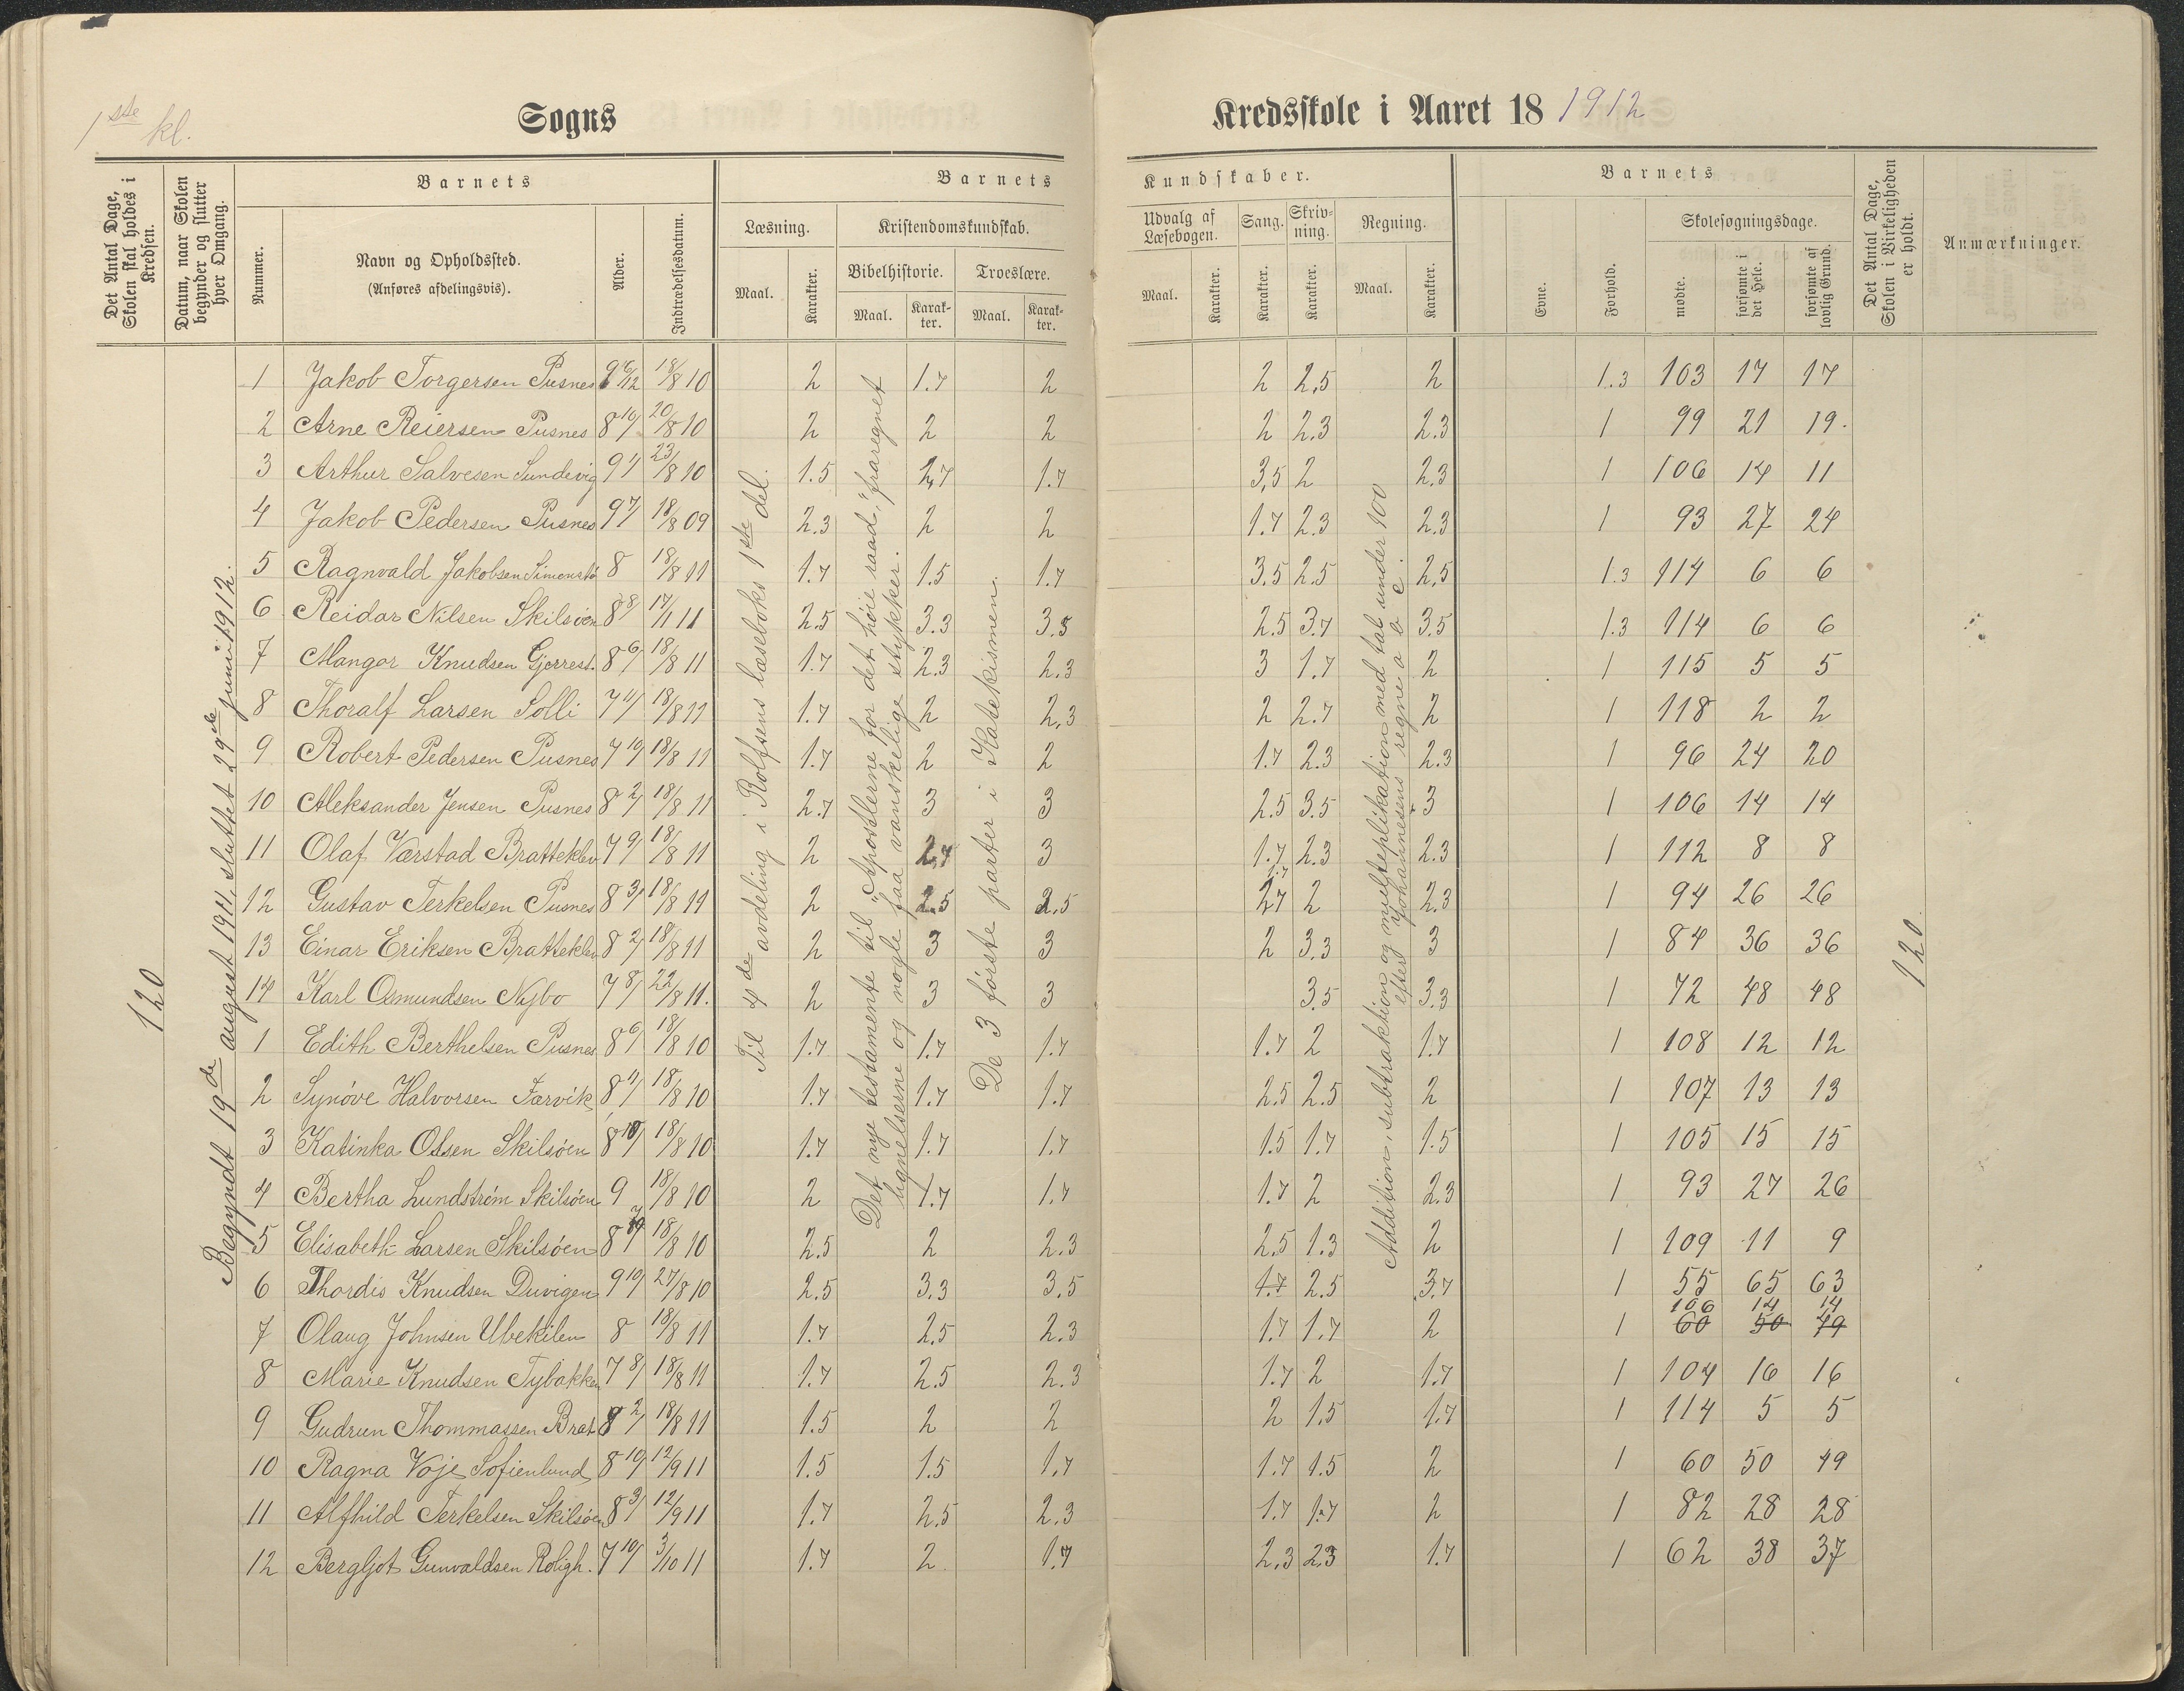 1ste kl.
Sogns
Kredsskole i Aaret 18 1912
Det Antal Dage, Skolen skal holdes i Kredsen.
Datum, naar Skolen begynder og slutter hver Omgang.
Barnets
Nummer.
Navn og Opholdssted.
(Anføres afdelingsvis).
Alder.
Indtrædelsesdatum.
Barnets
Læsning.
Maal.
Karakter.
Kristendomskundskab.
Bibelhistorie.
Maal.
Karakter.
Troeslære.
Maal.
Karakter.
Kundskaber.
Udvalg af Læsebogen.
Maal.
Karakter.
Sang.
Karakter.
Skrivning.
Karakter.
Regning.
Maal.
Karakter.
Barnets
Evne.
Forhold.
Skolesøgningsdage.
mødte.
forsømte i det Hele.
forsømte af lovlig Grund.
Det Antal Dage, Skolen i Virkeligheden er holdt.
Anmærkninger.
120
Begyndt 19de august 1911, sluttet 29de juni 1912.
Til 4de avdeling i Rolfsens læseboks 1ste del.
Det nye testamente til "Apostlerne for det høie raad," fraregnet
lignelserne og nogle faa vanskelige stykker.
De 3 første parter i Katekismen.
Addition, subtraktion og multeplikation med tal under 100
efter Johannesens regne a b c.
120
1 Jakob Torgersen Pusnes 9 6/12 18/8 10 2 1.7 2 2 2.5 2 1.3 103 17 17
2 Arne Reiersen Pusnes 8 10/ 20/8 10 2 2 2 2 2.3 2.3 1 99 21 19.
3 Arthur Salvesen Sundevig 9 1/ 23/8 10 1.5 2,7 1.7 3,5 2 2.3 1 106 14 11
4 Jakob Pedersen Pusnes 9 7/ 18/8 09 2.3 2 2 1.7 2.3 2.3 1 93 27 24
5 Ragnvald Jakobsen Simonstø 8 18/8 11 1.7 1.5 1.7 3.5 2.5 2,5 1.3 114 6 6
6 Reidar Nilsen Skilsøen 8 8/ 17/1 11 2.5 3.3 3.5 2.5 3.7 3.5 1.3 114 6 6
7 Mangor Knudsen Gjerrest. 8 6/ 18/8 11 1.7 2.3 2.3 3 1.7 2 1 115 5 5
8 Thoralf Larsen Solli 7 11/ 18/8 11 1.7 2 2,3 2 2.7 2 1 118 2 2
9 Robert Pedersen Pusnes 7 10/ 18/8 11 1.7 2 2 1.7 2.3 2.3 1 96 24 20
10 Aleksander Jensen Pusnes 8 2/ 18/8 11 2.7 3 3 2.5 3.5 3 1 106 14 14
11 Olaf Værstad Bratteklev 7 9/ 18/8 11 2 2,7 3 1.7 2.3 2.3 1 112 8 8
12 Gustav Terkelsen Pusnes 8 3/ 18/8 11 2 2.5 2.5 1.7 2,7 2 2.3 1 94 26 26
13 Einar Eriksen Bratteklev 8 2/ 18/8 11 2 3 3 2 3.3 3 1 84 36 36
14 Karl Osmundsen Nybo 7 8/ 22/8 11. 2 3 3 3.5 3.3 1 72 48 48
1 Edith Berthelsen Pusnes 8 6/ 18/8 10 1.7 1.7 1.7 1.7 2 1.7 1 108 12 12
2 Synøve Halvorsen Færvik 8 11/ 18/8 10 1.7 1.7 1.7 2.5 2.5 2 1 107 13 13
3 Katinka Olsen Skilsøen 8 10/ 18/8 10 1.7 1.7 1.7 1.5 1.7 1.5 1 105 15 15
4 Bertha Lundstrøm Skilsøen 9 18/8 10 2 1.7 1.7 1.7 2 2.3 1 93 27 26
5 Elisabeth Larsen Skilsøen 8 18/8 10 2.5 2 2.3 2.5 1.3 2 1 109 11 9
6 Thordis Knudsen Duvigen 9 10/ 27/8 10 2.5 3.3 3.5 1.7 2.5 3.7 1 55 65 63
7 Olaug Johnsen Ubekilen 8 18/8 11 1.7 2.5 2.3 1.7 1.7 2 1 106 60 14 50 14 49
8 Marie Knudsen Tybakken 7 8/ 18/8 11 1.7 2.5 2.3 1.7 2 1.7 1 104 16 16
9 Gudrun Thommassen Brat 8 2/ 18/8 11 1.5 2 2 2 1.5 1.7 1 114 5 5
10 Ragna Voje Sofienlund 8 10/ 12/9 11 1.5 1.5 1.7 1.7 1.5 2 1 60 50 49
11 Alfhild Terkelsen Skilsøen 8 3/ 12/9 11 1.7 2.5 2.3 1.7 1.7 2 1 82 28 28
12 Bergljot Gunvaldsen Roligh. 7 10/ 3/10 11 1.7 2 1.7 2.3 2.3 1.7 1 62 38 37